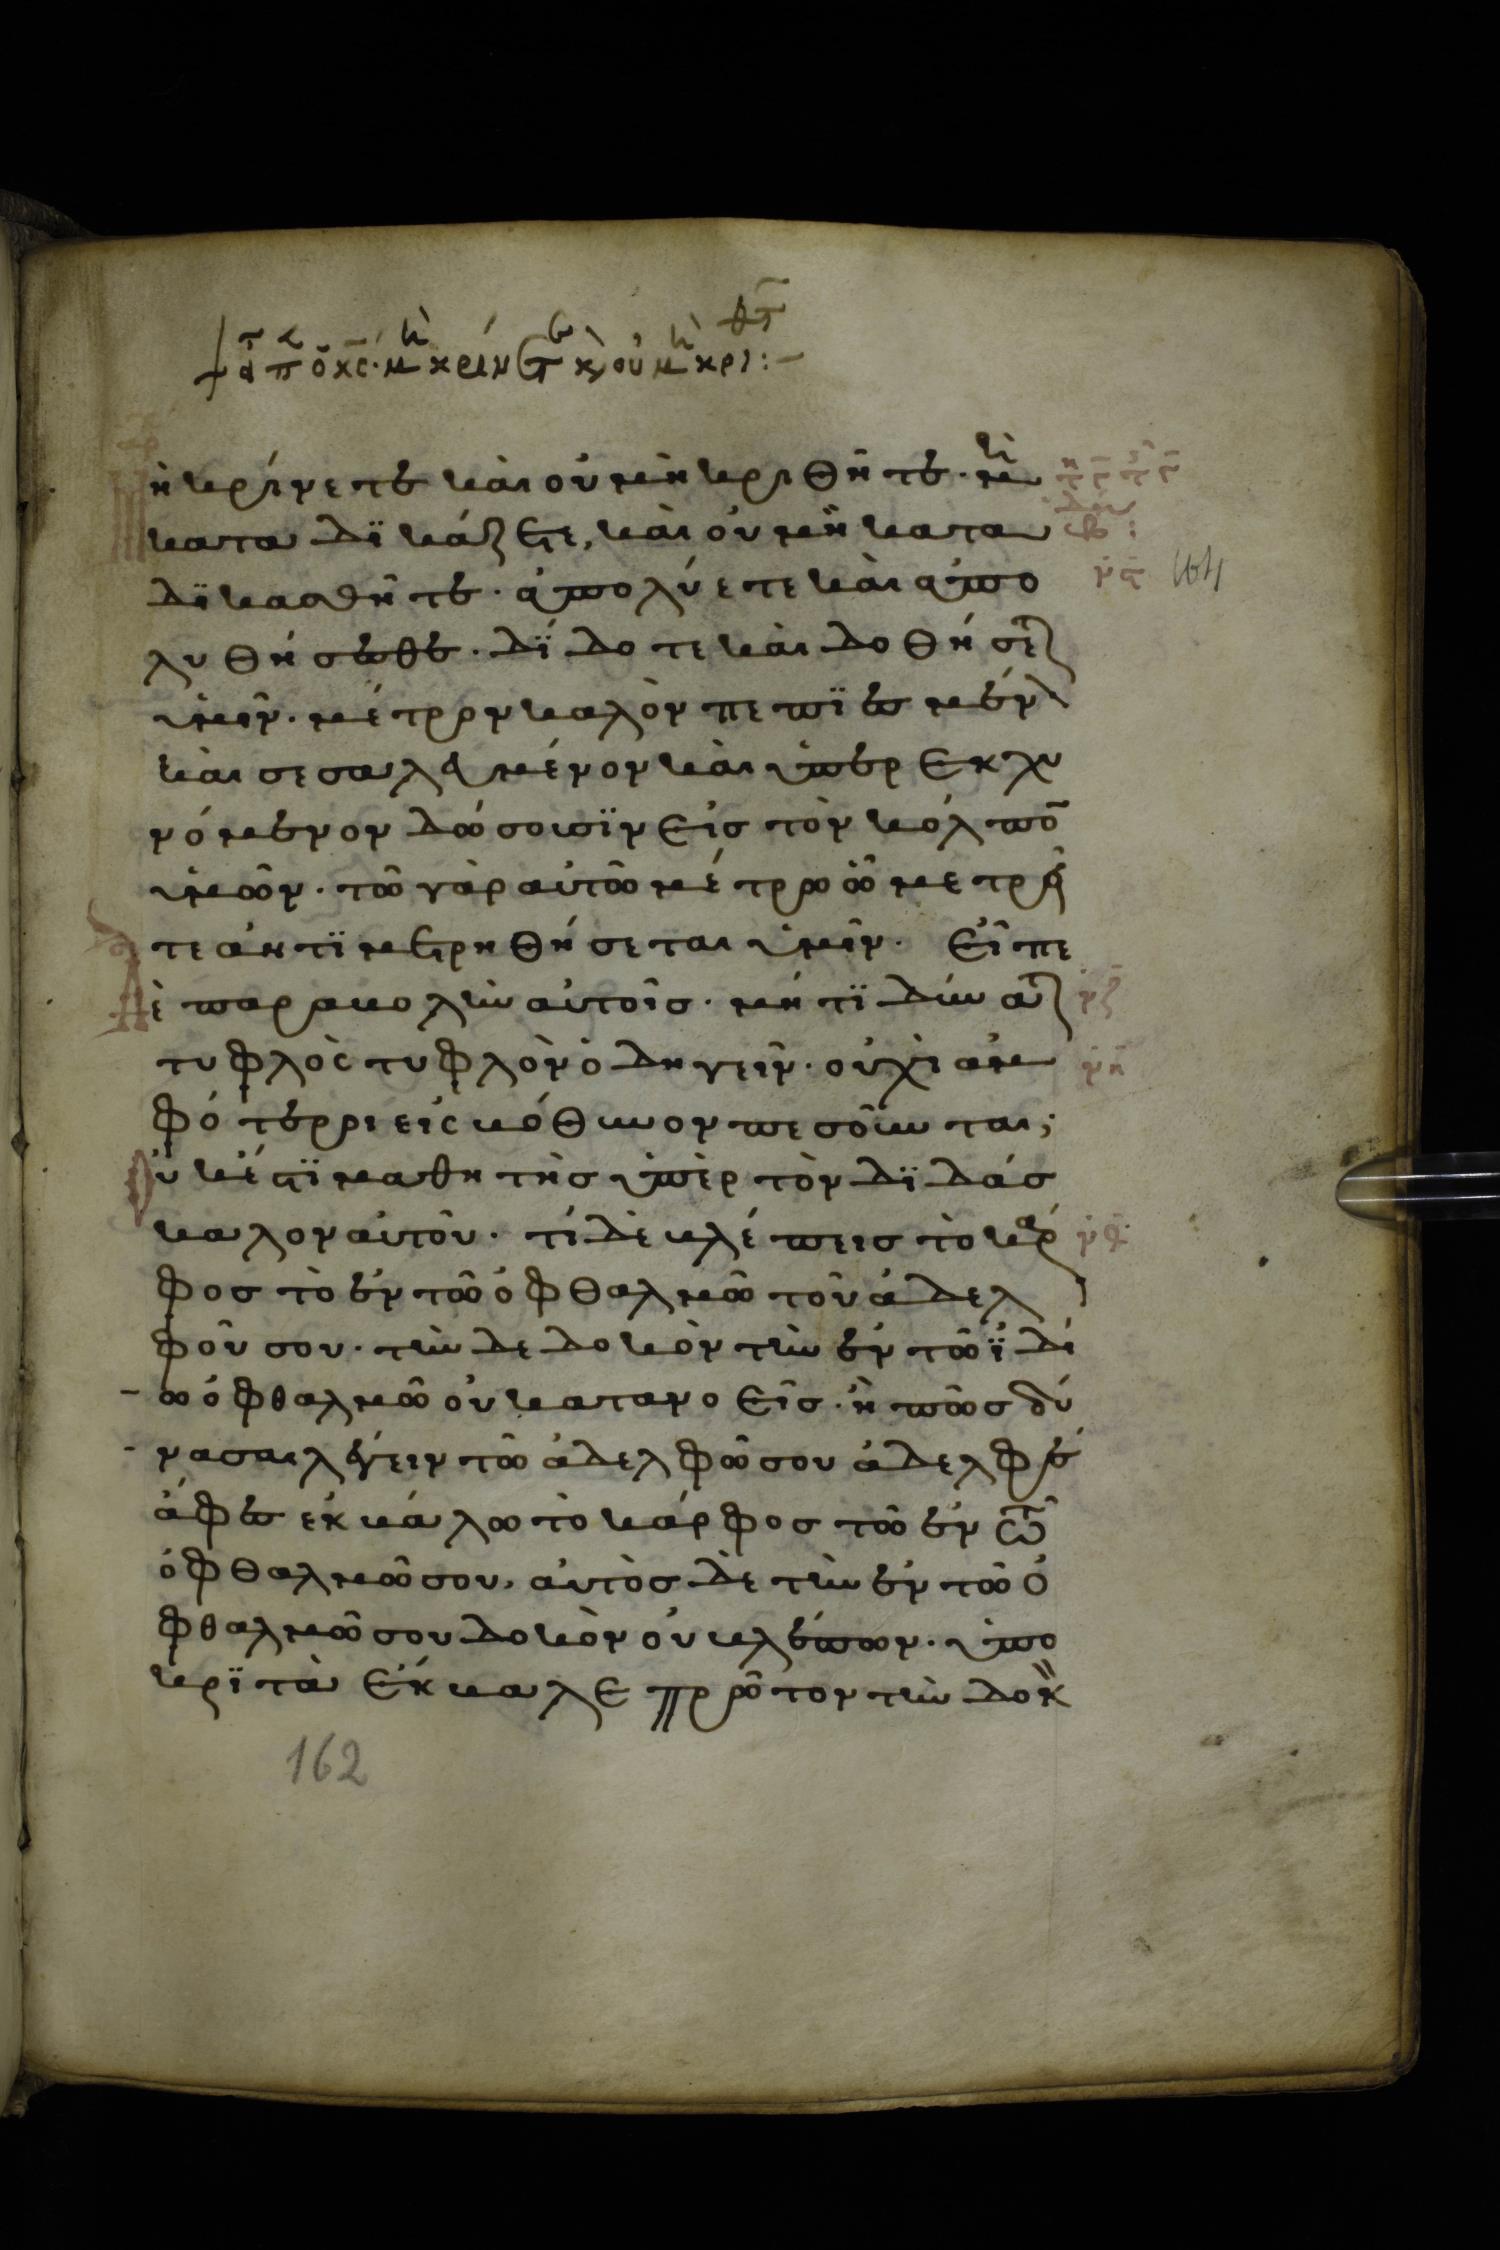 εἶπ ὁ κς· μὴ κρίνετε κ οὐ μὴ κριθτ :-
Μὴ κρίνετε καὶ οὐ μὴ κριθῆτε· μὴ
καταδϊκάζετε, καὶ οὐ μὴ κατα
δϊκασθῆτε· ἀπολύετε καὶ ἀπο
λυθήσεσθε· δΐδοτε καὶ δοθήσετ
ὑμῖν· μέτρον καλὸν πεπϊεσμένον
καὶ σεσαλευμένον καὶ ὑπερεκχυ
νόμενον δώσουσϊν εἰς τὸν κόλπον
ὑμῶν· τῶ γὰρ αὐτῶ μέτρω ὧ μετρεῖ
τε ἀντϊμετρηθήσεται ὑμῖν· εἶπε
δὲ παραβολὴν αὐτοῖς· μήτϊ δύνατ
τυφλὸς τυφλὸν ὁδηγεῖν· οὐχὶ ἀμ
φότεροι εἰς βόθυνον πεσοῦνται;
Οὐκ έστϊ μαθητὴς ὑπὲρ τὸν δϊδάσ
καλον αὐτοῦ· τί δὲ βλέπεις τὸ κάρ
φος τὸ ἐν τῶ ὀφθαλμῶ τοῦ ἀδελ
φοῦ σου· τὴν δε δοκὸν τὴν ἐν τῶ ἰδί
ω ὀφθαλμῶ οὐ κατανοεῖς· ἢ πῶς δύ
νασαι λέγειν τῶ ἀδελφῶ σου ἀδελφέ
ἄφες ἐκβάλω τὸ κάρφος τῶ ἐν τῶ
ὀφθαλμῶ σου, αὐτὸς δὲ τὴν ἐν τῶ ὀ
φθαλμῶ σου δοκὸν οὐ βλέπων· ὑπο
κρϊτὰ ἔκβαλε πρῶτον τὴν δοκ
162